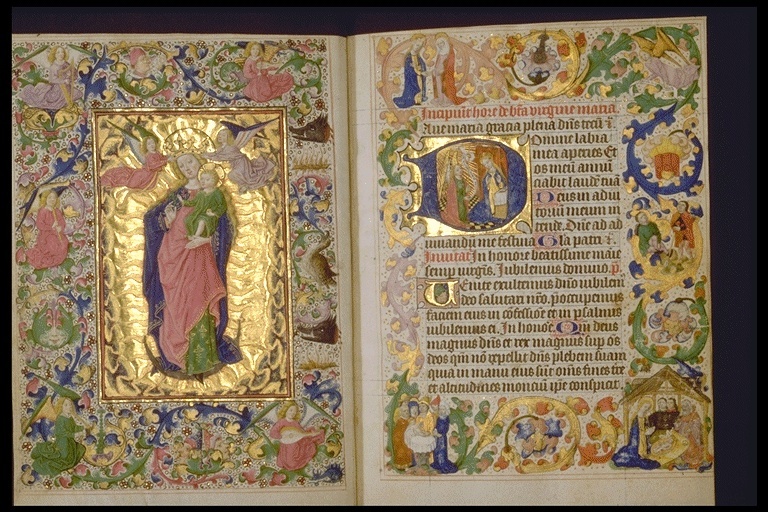 Incipiūt hore de bt̄a virgine maria.
Aue maria gracia plena dn̄s tecū
Domine labia
mea aperies Et
os meū annū
ciabit laudē tuā
Deus in adiu
toriū meum in
tende. Dn̄e ad ad
iuuandū me festina Gl̄a patri
Inuitat̄ In honore beatissime marie
semp̄ uirgīs. Iubilemus domino. p̄.
Uenite exultemus dn̄o iubilem
deo salutari nr̄o, p̄occupemus
faciem eius in cōfessiōe et in psalmis
iubilemus ei. In honore. Qm̄ deus
magnus dn̄s et rex magnus sup̄ oēs
deos qm̄ nō repellit dn̄s plebem suam
quia in manu eius sūt om̄s fines tr̄e
et altitudines monciū ip̄e conspicit.